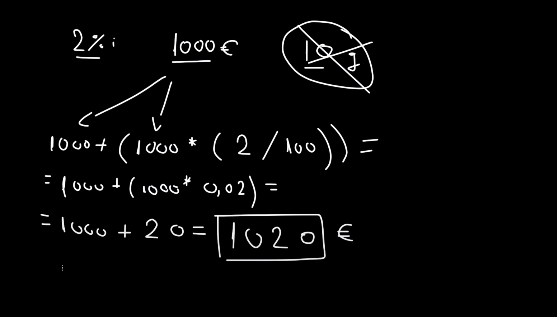 2% i 1000 € 10 J
1000 + (1000 * (2 / 100)) =
= 1000 + (1000 * 0,02) =
= 1000 + 20 = 1020 €